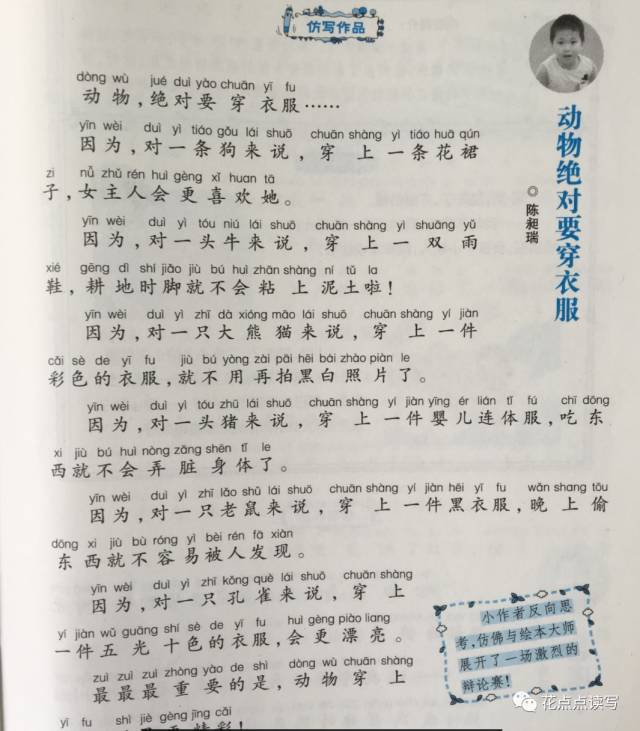 仿写作品
动物绝对要穿衣服
◎陈昶瑞
dòng wù jué duì yào chuān yī fu
动物，绝对要穿衣服……
yīn wèi duì yì tiáo gǒu lái shuō chuān shàng yì tiáo huā qún
因为，对一条狗来说，穿上一条花裙
zi nǚ zhǔ rén huì gèng xǐ huan tā
子，女主人会更喜欢她。
yīn wèi duì yì tóu niú lái shuō chuān shàng yì shuāng yǔ
因为，对一头牛来说，穿上一双雨
xié gēng dì shí jiǎo jiù bú huì zhān shàng ní tǔ la
鞋，耕地时脚就不会粘上泥土啦！
yīn wèi duì yì zhī dà xióng māo lái shuō chuān shàng yí jiàn
因为，对一只大熊猫来说，穿上一件
cǎi sè de yī fu jiù bú yòng zài pāi hēi bái zhào piàn le
彩色的衣服，就不用再拍黑白照片了。
yīn wèi duì yì tóu zhū lái shuō chuān shàng yí jiàn yīng ér lián tǐ fú chī dōng
因为，对一头猪来说，穿上一件婴儿连体服，吃东
xi jiù bú huì nòng zāng shēn tǐ le
西就不会弄脏身体了。
yīn wèi duì yì zhī lǎo shǔ lái shuō chuān shàng yí jiàn hēi yī fu wǎn shang tōu
因为，对一只老鼠来说，穿上一件黑衣服，晚上偷
dōng xi jiù bù róng yì bèi rén fā xiàn
东西就不容易被人发现。
yīn wèi duì yì zhī kǒng què lái shuō chuān shàng
因为，对一只孔雀来说，穿上
yí jiàn wǔ guāng shí sè de yī fu huì gèng piào liang
一件五光十色的衣服，会更漂亮。
zuì zuì zuì zhòng yào de shì dòng wù chuān shàng
最最最重要的是，动物穿上
yī fu shì jiè gèng jīng cǎi
小作者反向思
考，仿佛与绘本大师
展开了一场激烈的
辩论赛！
花点点读写